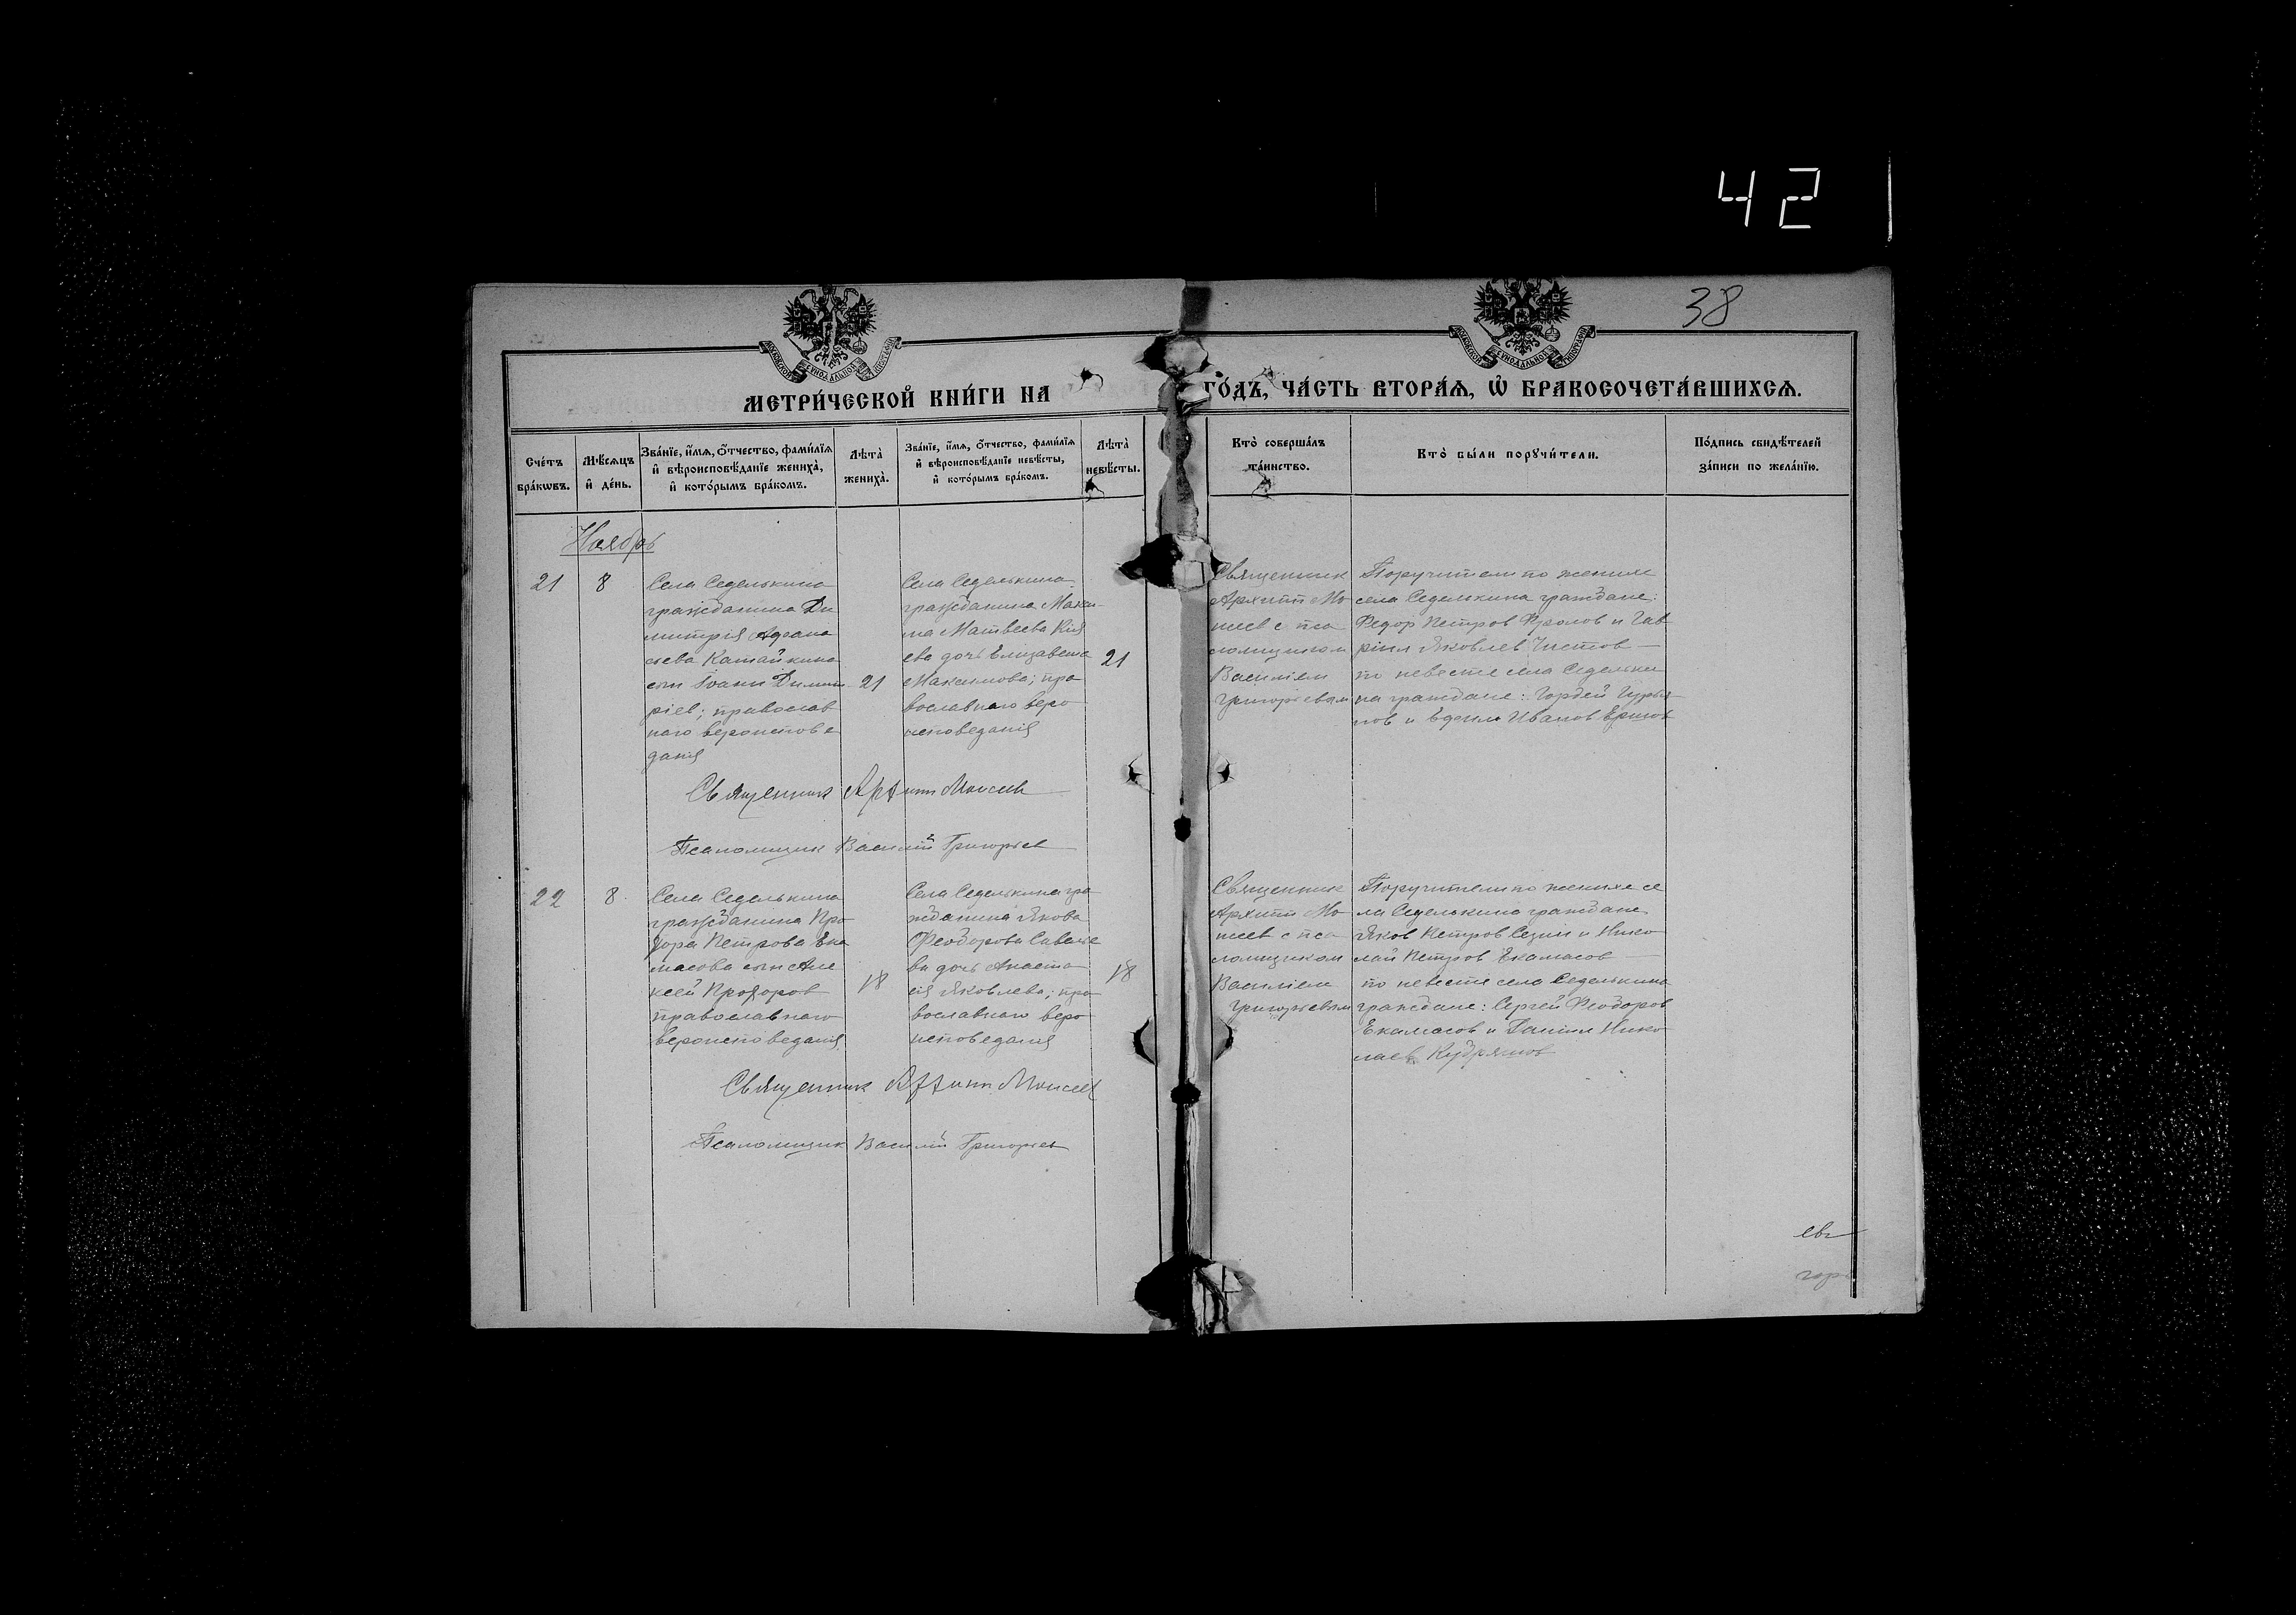 42
38
МЕТРИ́ЧЕСКОЙ КНИ́ГИ НА ГО́ДЪ, ЧА́СТЬ ВТОРА́Я, Ѡ БРАКОСОЧЕТА́ВШИХСЯ.
Сче́тъ бра́кωвъ.
Мѣ́сяцъ и де́нь.
Зва́нїе, и́мя, ѻ́тчество, фами́лїя и вѣроисповѣ́данїе жениха̀, и кото́рымъ бра́комъ.
Лѣта̀ жениха̀.
Зва́нїе, и́мя, ѻ́тчество, фами́лїя и вѣроисповѣ́данїе невѣ́сты, и кото́рымъ бра́комъ.
Лѣта̀ невѣ́сты.
Кто̀ соверша́лъ та́инство.
Кто̀ бы́ли порꙋчи́тели.
По́дпись свидѣ́телей за́писи по жела́нїю.
Ноябрь
21
8
Села Седелькина
гражданина Ди
митрія Афана
сьева Катайкина
сын Іоанн Димит
ріев; православ
наго вероиспове
данія
21
Села Седелькина
гражданина Макси
ма Матвеева Кія
ева дочь Елизавета
Максимова; пра
вославнаго веро
исповеданія
21
Священник
Архипп Мо
исеев с пса
ломщиком
Василіем
Григорьевым
Поручители по женихе
села Седелькина граждане:
Федор Петров Фролов и Гав
ріил Яковлев Чистов
по невесте села Седельки
на граждане: Гордей Гурья
нов и Иванов
Священник Архипп Моисеев
Псаломщик Василій Григорьев
22
8
Села Седелькина
гражданина Про
хора Петрова Ека
масова сын Але
ксей Прохоров
православнаго
вероисповеданія
18
Села Седелькина гра
жданина Якова
Феодорова Савелье
ва дочь Анаста
сія Яковлева; пра
вославнаго веро
исповеданія
18
Священник
Архипп Мо
исеев с пса
ломщиком
Василіем
Григорьевым
Поручители по женихе се
ла Седелькина граждане
Яков Петров и Нико
лай Петров Екамасов
по невесте села Седелькина
граждане: Сергей Феодоров
Екамасов и Данил Нико
лаев Кудряшов
Священник Архипп Моисеев
Псаломщик Василій Григорьев